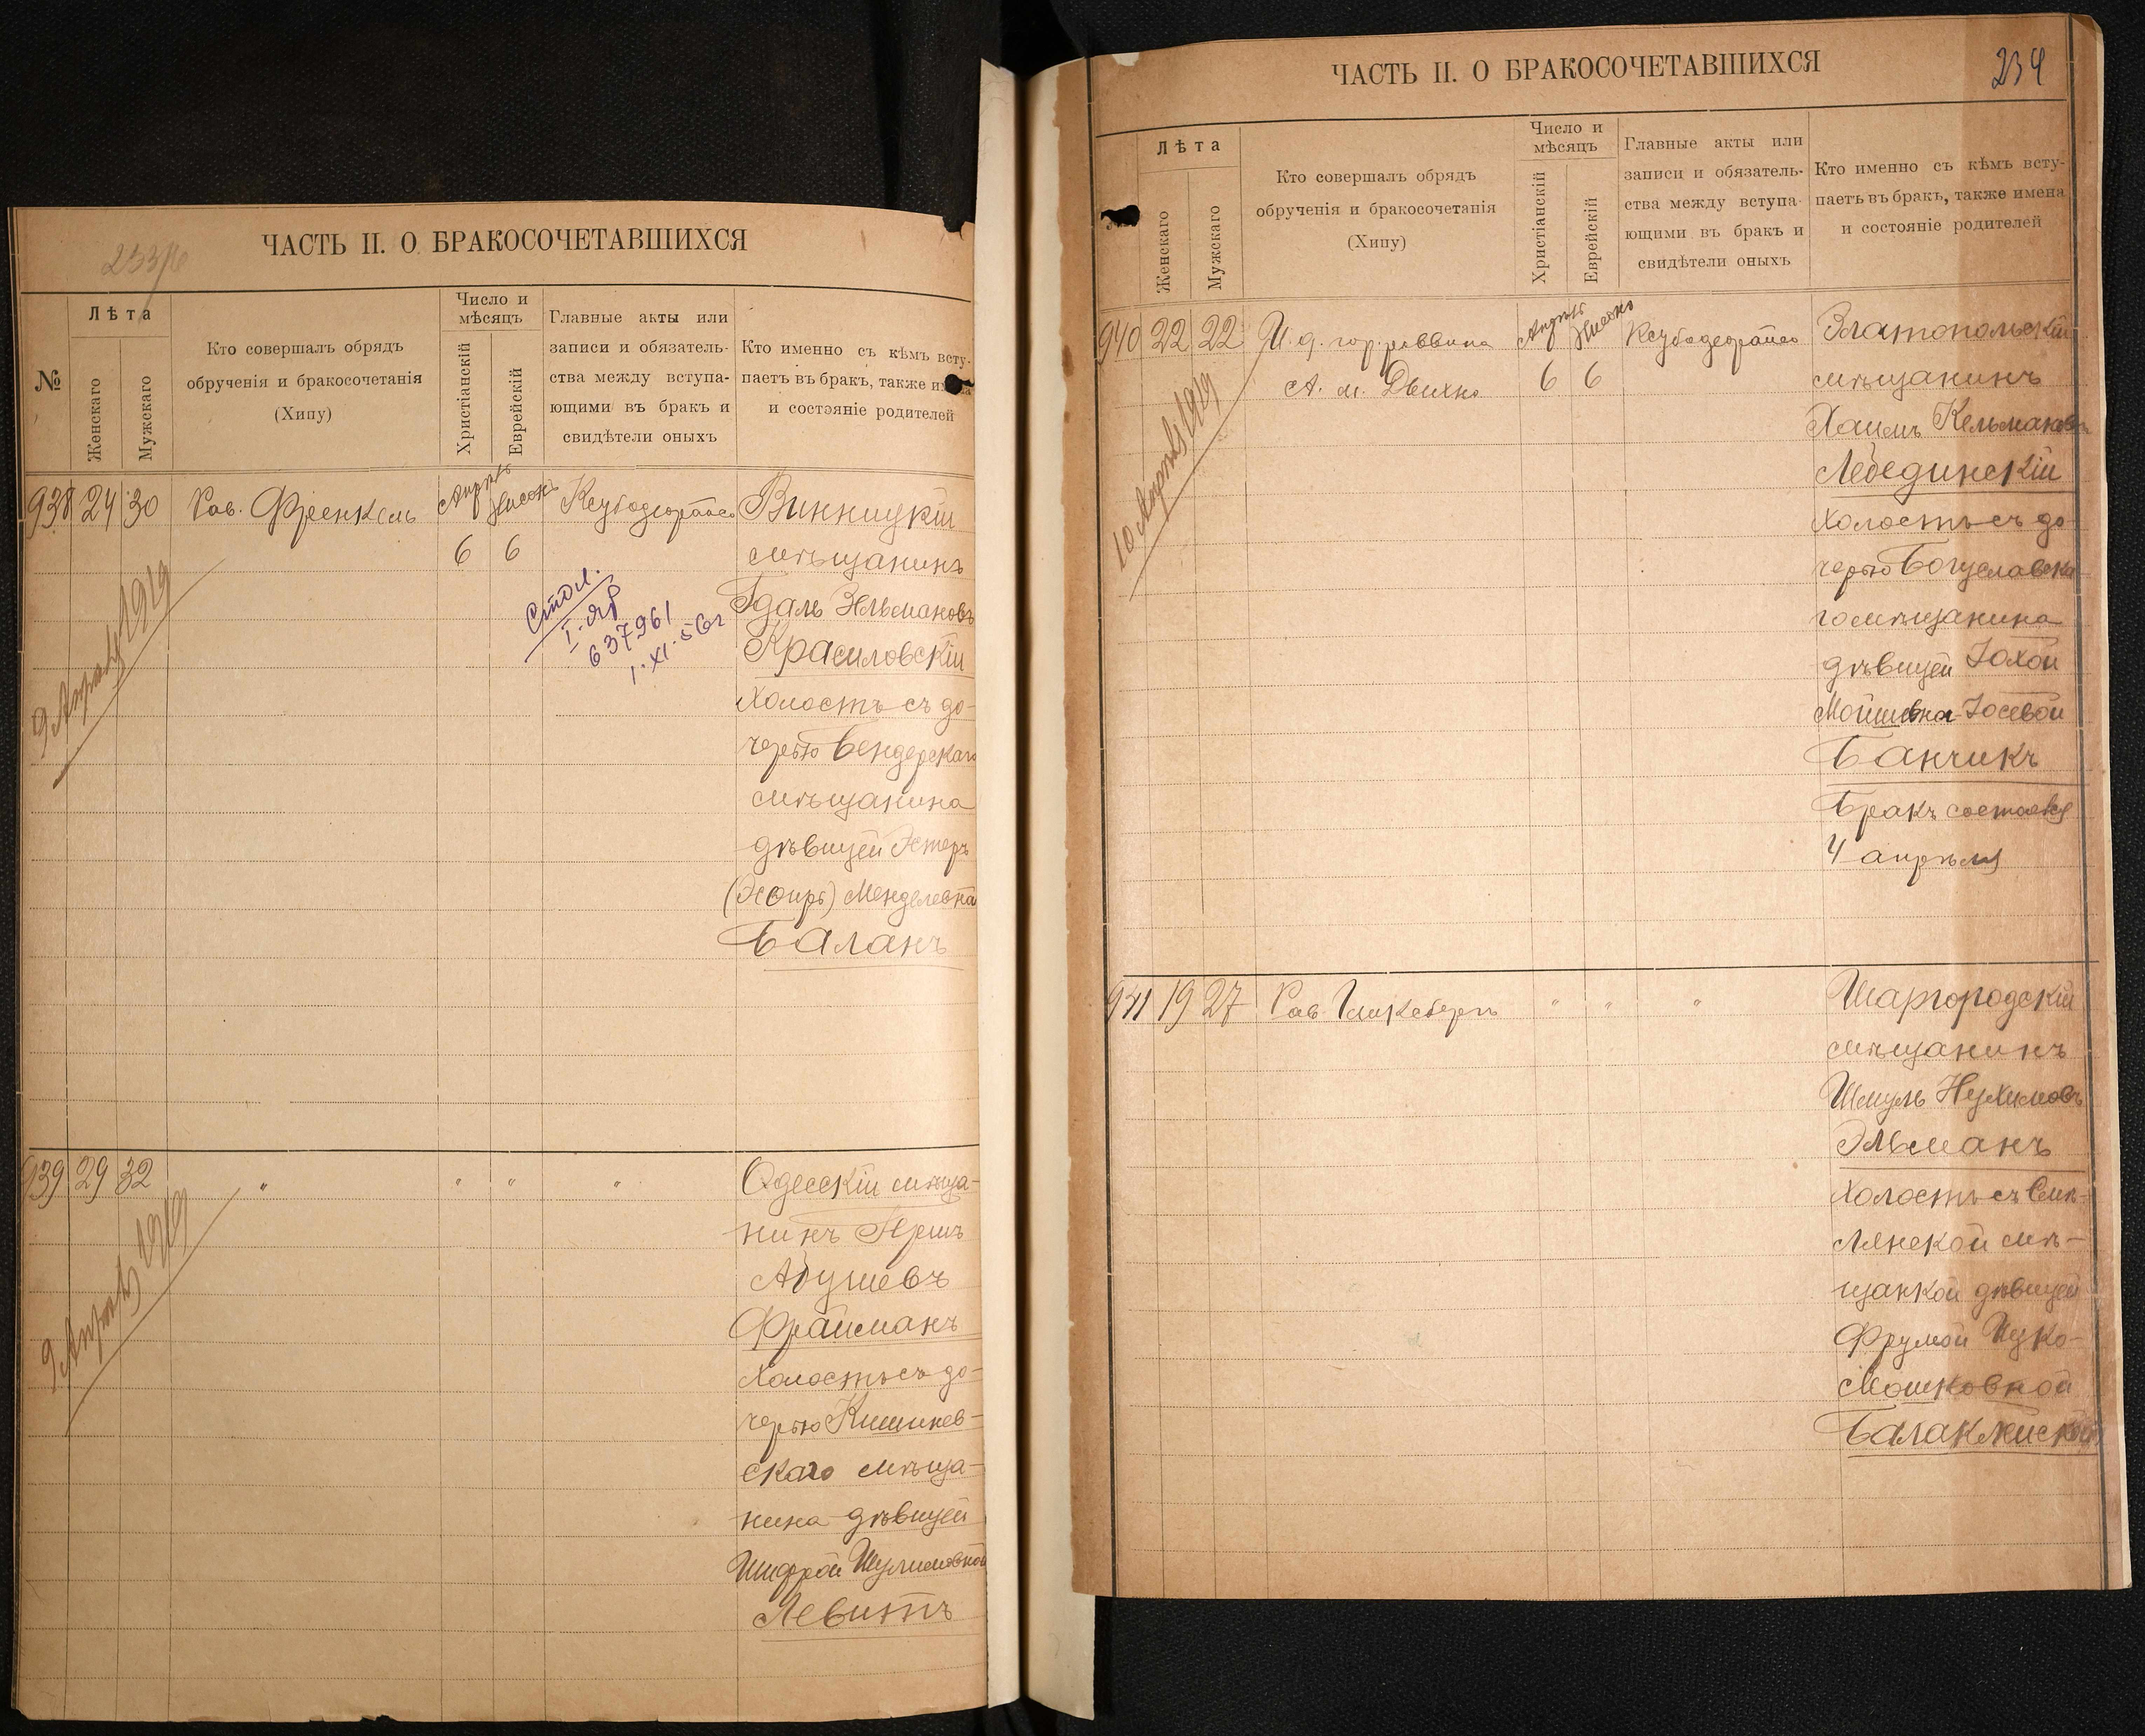 ЧАСТЬ II. О БРАКОСОЧЕТАВШИХСЯ
№
Лѣта
Женскаго
Мужскаго
Кто совершалъ обрядъ
обрученія и бракосочетанія
(Хипу)
Число и
мѣсяцъ
Христіанскій
Еврейскій
Главные акты или
записи и обязатель-
ства между вступа-
ющими въ бракъ и
свидѣтели оныхъ
Кто именно съ кѣмъ всту-
паетъ въ бракъ, также имена
и состояніе родителей
938 24 30 Рав. Френкель Апрѣль Нисонъ
6 6
Винницкій
мѣщанинъ
Гдаль Зельмановъ
Красиловскій
холостъ съ до-
черью Бендерскаго
мѣщанина
дѣвицей Эстеръ
(Эсѳирь) Менделевна
Баланъ
9 Апрѣль 1919
637961
1.XI.56г
939 29 32 " " " "
Одесскій мѣща-
нинъ Гершъ
Абушевъ
Файсманъ
холостъ съ до-
черью Кишинев-
скаго мѣща-
нина дѣвицей
Шифрой Шулимовной
Левитъ
9 Апрѣль 1919
ЧАСТЬ II. О БРАКОСОЧЕТАВШИХСЯ
234
Лѣта
Женскаго
Мужскаго
Кто совершалъ обрядъ
обрученія и бракосочетанія
(Хипу)
Число и
мѣсяцъ
Христіанскій
Еврейскій
Главные акты или
записи и обязатель-
ства между вступа-
ющими въ бракъ и
свидѣтели оныхъ
Кто именно съ кѣмъ всту-
паетъ въ бракъ, также имена
и состояніе родителей
940 22 22 И. д. гор. раввина Апрѣль Нисонъ
А. м. 6 6
Златопольскій
мѣщанинъ
Хаимъ Кельмановъ
Лебединскій
холостъ съ до-
черью Богуславска-
го мѣщанина
дѣвицей Хохой
Мошковна-Іосевой
Банчикъ
Бракъ состоялся
4 апрѣля
10 Апрѣль 1919
941 19 27 Рав. Гликсбергъ " " "
Шаргородскій
мѣщанинъ
Шмуль Нухимовъ
Эльманъ
холостъ съ Смѣ-
лянской мѣ-
щанкой дѣвицей
Фрумой Ицко-
Мошковной
Балаклийской